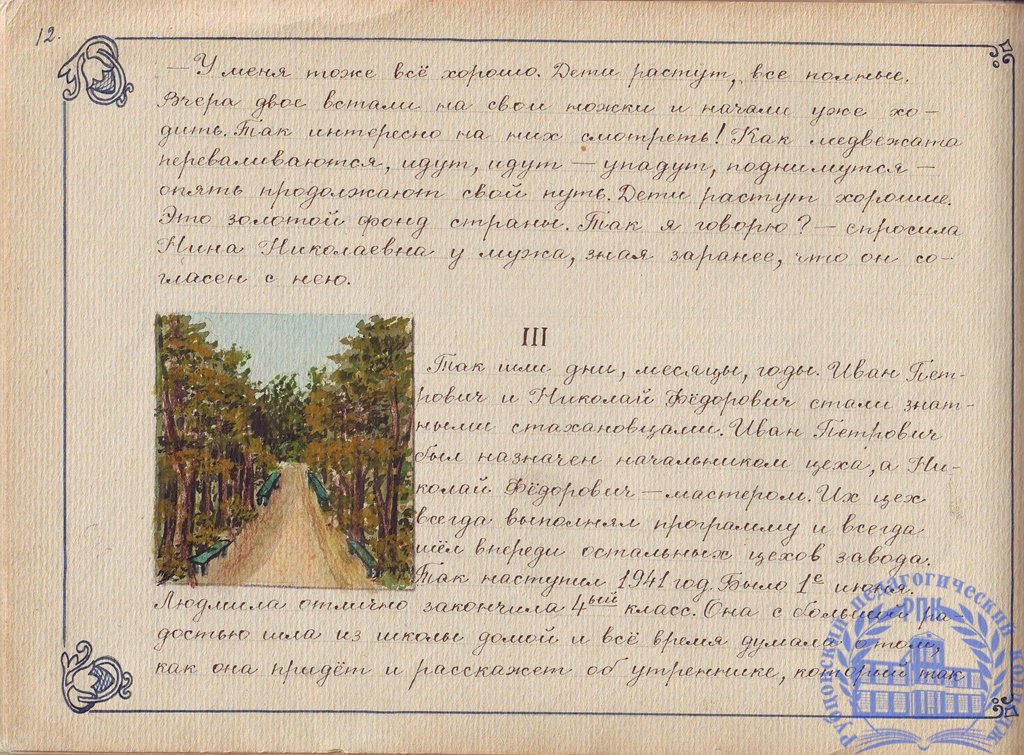 12.
— У меня тоже всё хорошо. Дети растут, все полные.
Вчера двое встали на свои ножки и начали уже хо-
дить. Так интересно на них смотреть! Как медвежата
переваливаются, идут, идут — упадут, поднимутся —
опять продолжают свой путь. Дети растут хорошие.
Это золотой фонд страны. Так я говорю? — спросила
Нина Николаевна у мужа, зная заранее, что он со-
гласен с нею.
III
Так шли дни, месяцы, годы. Иван Пет-
рович и Николай Фёдорович стали знат-
ными стахановцами. Иван Петрович
был назначен начальником цеха, а Ни-
колай Фёдорович — мастером. Их цех
всегда выполнял программу и всегда
шёл впереди остальных цехов завода.
Так наступил 1941 год. Было 1е июня.
Людмила отлично закончила 4ый класс. Она с большой ра-
достью шла из школы домой и всё время думала о том,
как она придёт и расскажет об утреннике, который так
Рубцовский педагогический колледж
РПК